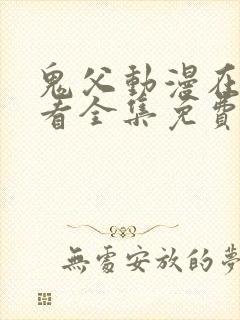 鬼父動漫在
看全集免費
無處安放的夢